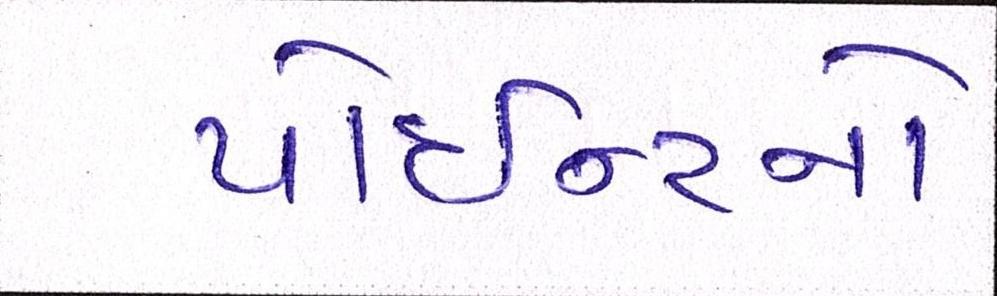 પોઈન્ટનો